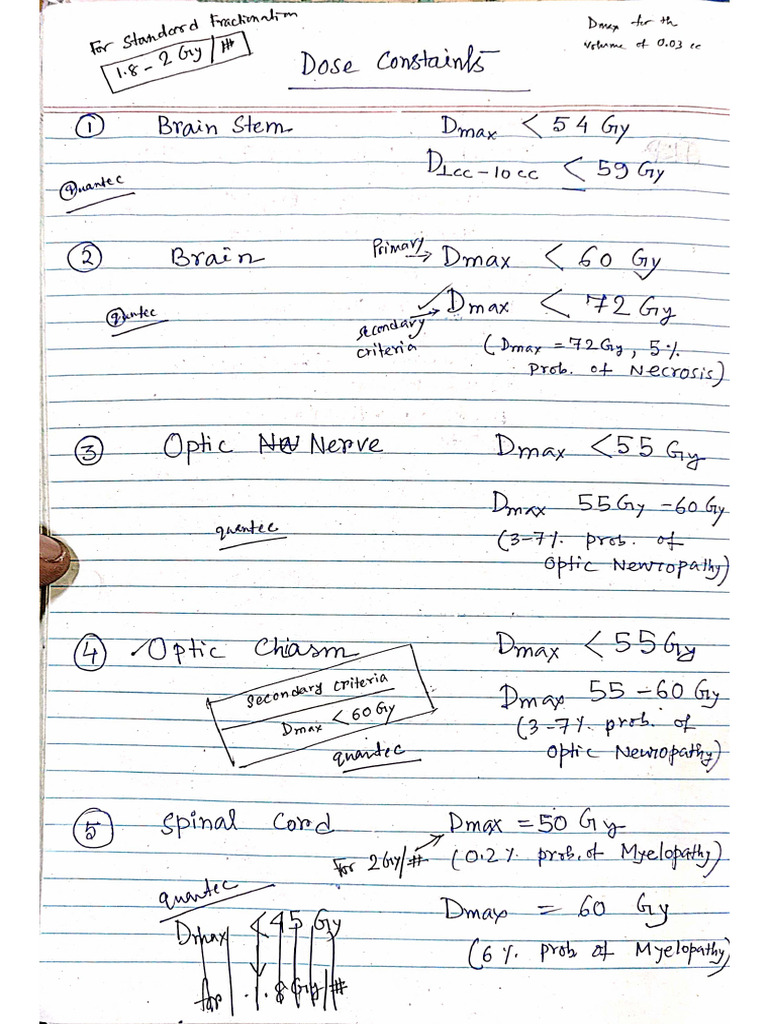 For Standard Fractionation
1.8 - 2 Gy/#
Dmax for th
volume of 0.03 cc
Dose Constaints
① Brain Stem Dmax < 54 Gy
D1cc-10cc < 59 Gy
Quantec
② Brain Primary → Dmax < 60 Gy
Quantec secondary criteria → Dmax < 72 Gy
(Dmax = 72 Gy, 5%
Prob. of Necrosis)
③ Optic Nerve Dmax < 55 Gy
Dmax 55 Gy - 60 Gy
quantec
(3-7% prob. of
Optic Neuropathy)
④ ✓Optic Chiasm Dmax < 55 Gy
Secondary criteria
Dmax < 60 Gy
quantec
Dmax 55 - 60 Gy
(3-7% prob. of
Optic Neuropathy)
⑤ Spinal Cord Dmax = 50 Gy
For 2 Gy/# (0.2% prob. of Myelopathy)
quantec
Dmax < 45 Gy
for 1.8 Gy/#
Dmax = 60 Gy
(6% prob of Myelopathy)